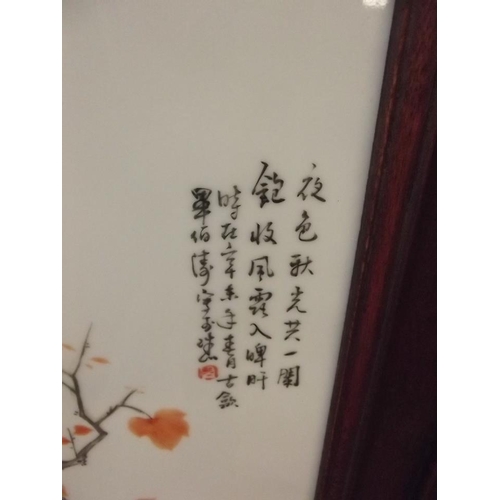 夜色秋光共一闌
飽收風露入脾肝
時在辛未年春月古歙
畢伯濤寫於珠山